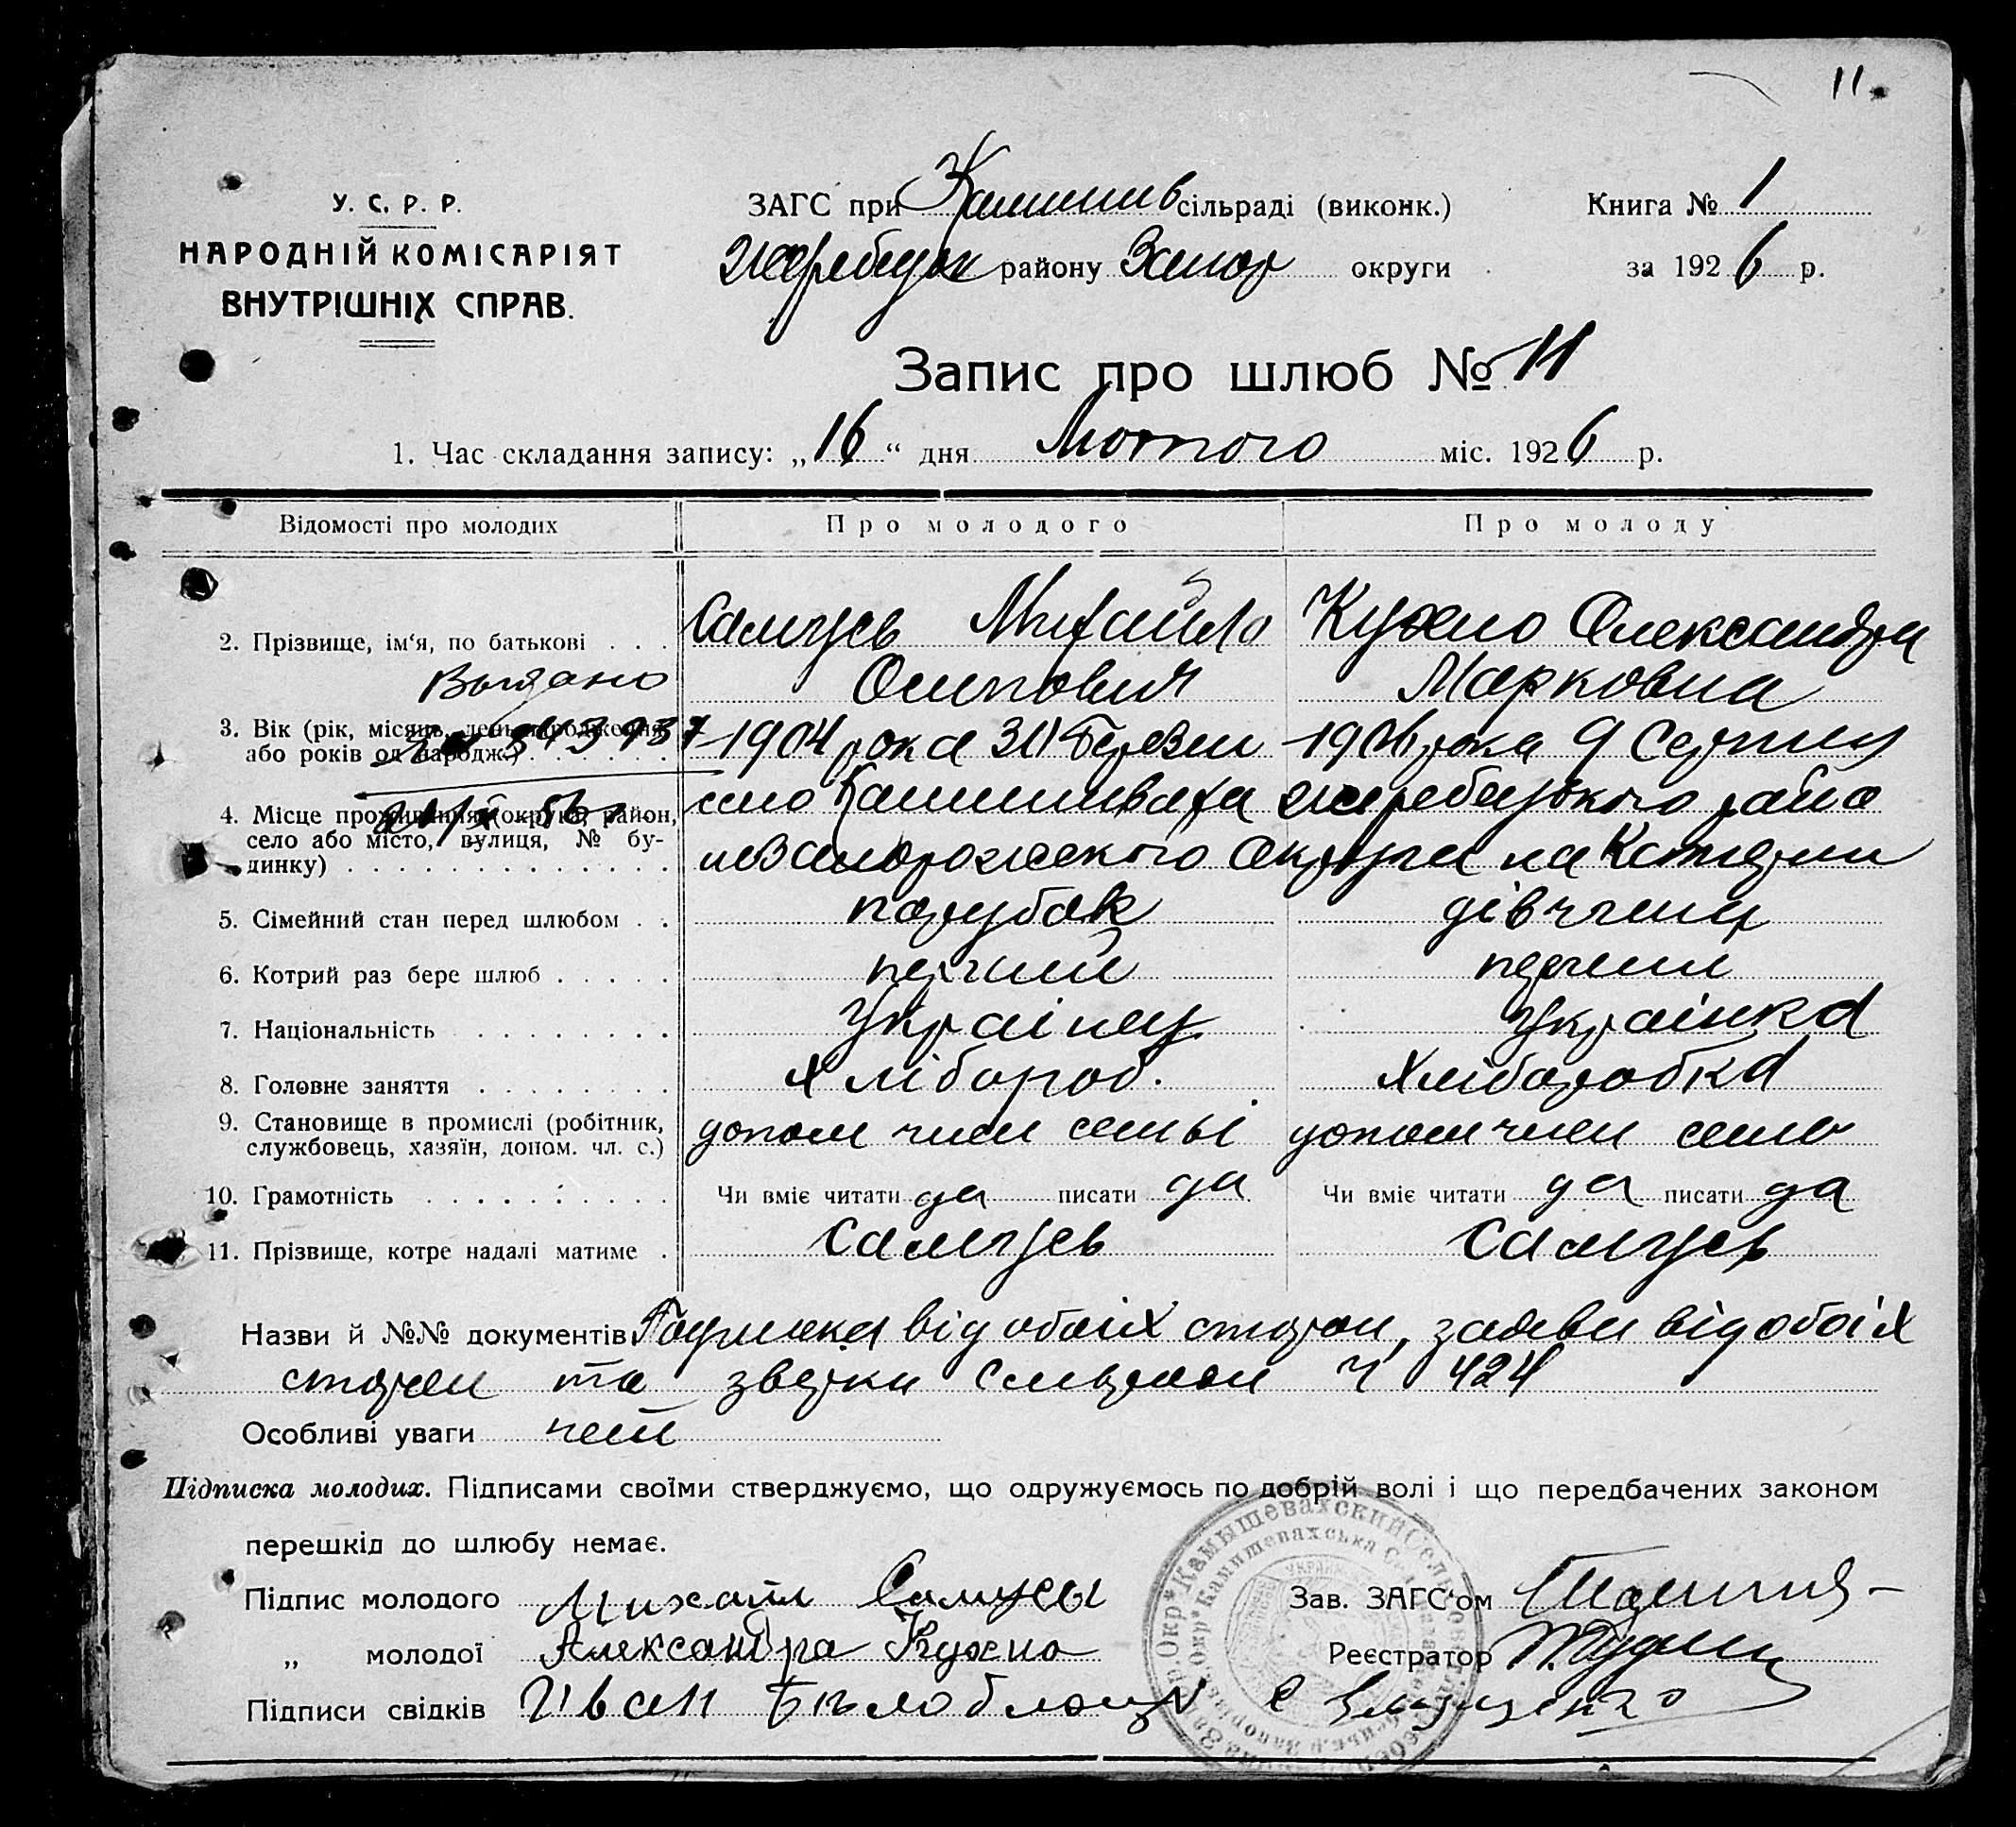 11.
У. С. Р. Р.
НАРОДНІЙ КОМІСАРІЯТ
ВНУТРІШНІХ СПРАВ.
ЗАГС при Камишив сільраді (виконк.)
Жеребецьк району Запор округи
Книга № 1
за 1926 р.
Запис про шлюб № 11
1. Час складання запису: „16“ дня Лютого міс. 1926 р.
Відомості про молодих
Про молодого
Про молоду
2. Прізвище, ім‘я, по батькові . . .
Самусь Михайло
Осипович
Кухно Александра
Марковна
Выдано
3. Вік (рік, місяць, день народження,
або років од народж.) . . . . . .
1904 рока 30 Березня
1906 рока 9 Серпня
4. Місце проживання (округа, район,
село або місто, вулиця, № бу-
динку) . . . . . . . . . . . .
село Камишиваха Жеребецького райо
на Запорожского Округи на Катерин
5. Сімейний стан перед шлюбом . .
парубок
дівчина
6. Котрий раз бере шлюб . . . . .
перший
перший
7. Національність . . . . . . . .
Українец
Українка
8. Головне заняття . . . . . . .
Хлібороб.
Хліборобка
9. Становище в промислі (робітник,
службовець, хазяїн, допом. чл. с.)
допом член семьі
допом член семь
10. Грамотність . . . . . . . . .
Чи вміє читати да писати да
Чи вміє читати да писати да
11. Прізвище, котре надалі матиме .
Самусь
Самусь
Назви й №№ документів від обоіх сторон, заяви від обоіх
сторон та звідки Ч 424
Особливі уваги
Підписка молодих. Підписами своїми стверджуємо, що одружуємось по добрій волі і що передбачених законом
перешкід до шлюбу немає.
Підпис молодого Михайл Самусь
„ молодої Александра Кухно
Підписи свідків Иван Билоблоцк
Зав. ЗАГС‘ом
Реєстратор
Камышевахский
Камишевахська